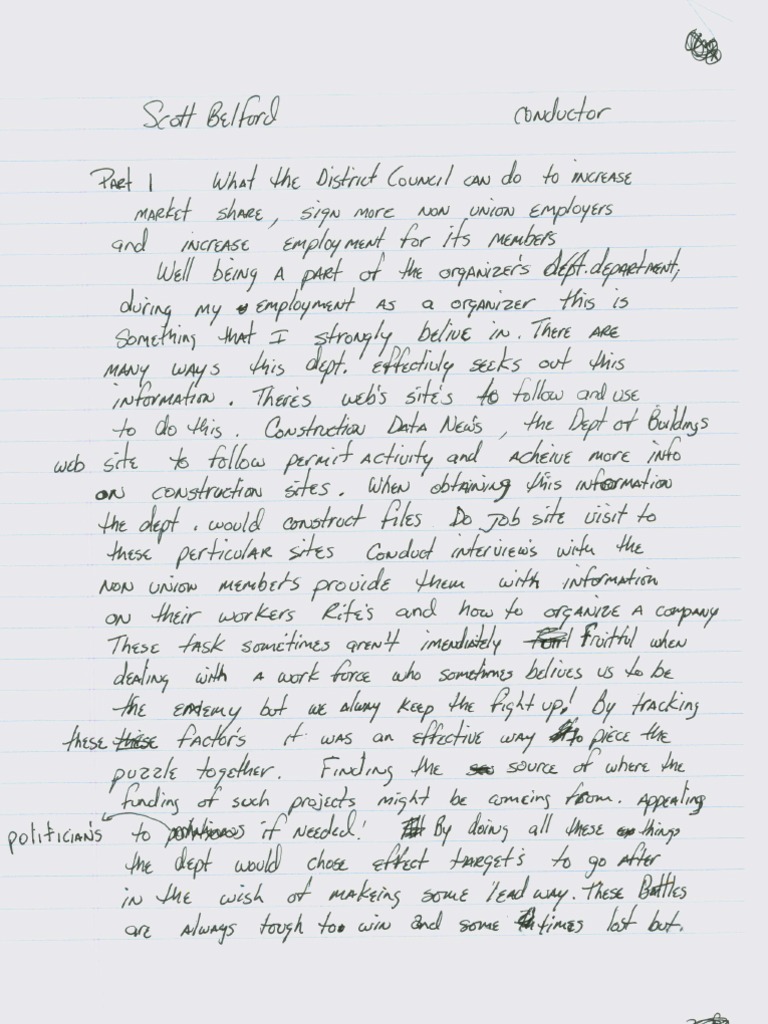 Scott Belford conductor
Part 1 What the District Council can do to increase
market share, sign more non union employers
and increase employment for its members
Well being a part of the organizer's dept. department,
during my employment as a organizer this is
something that I strongly belive in. There are
many ways this dept. effectivly seeks out this
information. There's web's site's to follow and use
to do this. Construction Data News, the Dept of Buildings
web site to follow permit activity and acheive more info
on construction sites. When obtaining this information
the dept. would construct files Do job site visit to
these perticular sites Conduct interviews with the
non union members provide them with information
on their workers Rite's and how to organize a company
These task sometimes aren't imediately fruitful when
dealing with a work force who sometimes belives us to be
the enemy but we alway keep the fight up! By tracking
these factor's it was an effective way to piece the
puzzle together. Finding the source of where the
funding of such projects might be comeing from. Appealing
politician's to if needed! By doing all these things
the dept would chose effect target's to go after
in the wish of makeing some lead way. These Battles
are always tough to win and some times lost but.